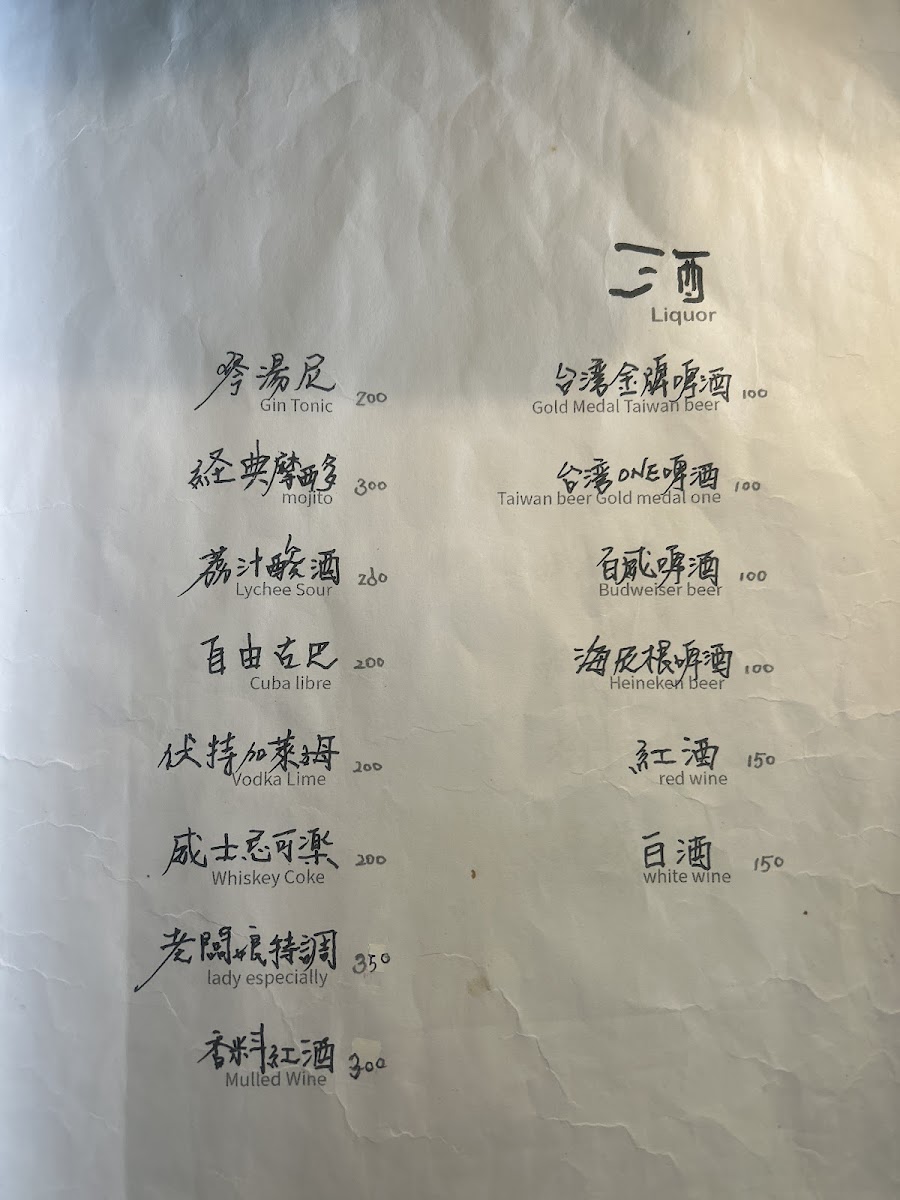 酒
Liquor
台湾金牌啤酒 100
Gold Medal Taiwan beer
台湾ONE啤酒 100
Taiwan beer Gold medal one
百威啤酒 100
Budweiser beer
海尼根啤酒 100
Heineken beer
紅酒 150
red wine
白酒 150
white wine
琴湯尼 200
Gin Tonic
経典摩西多 300
mojito
荔汁酸酒
Lychee Sour
自由古巴 200
Cuba libre
伏特加萊姆 200
Vodka Lime
威士忌可楽 200
Whiskey Coke
老闆娘特調 350
lady especially
香料紅酒 300
Mulled Wine